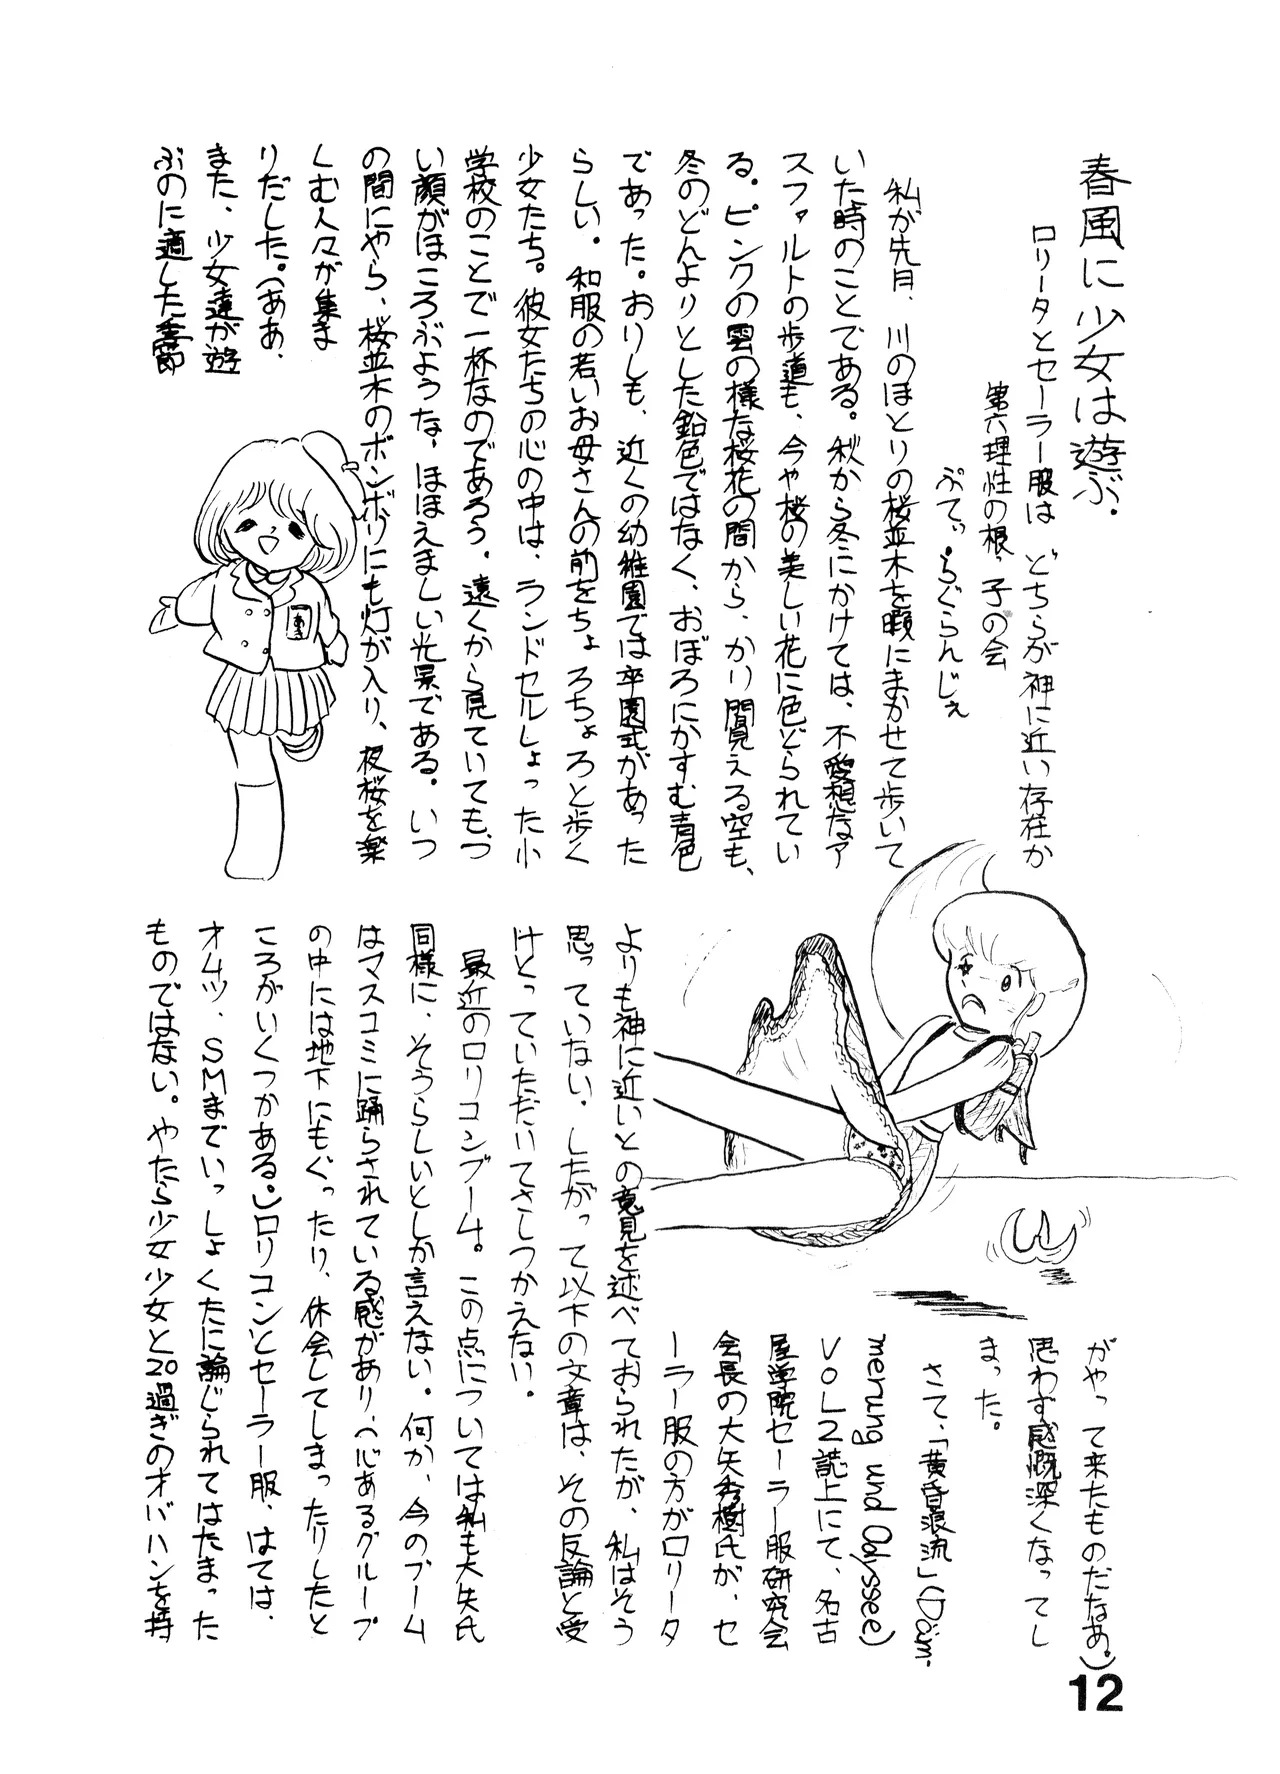 春風に少女は遊ぶ.
ロリータとセーラー服は どちらが神に近い存在か
第六理性の根っ子の会
ぷてぃ・らぐらんじぇ
私が先月、川のほとりの桜並木を暇にまかせて歩いて
いた時のことである。秋から冬にかけては、不愛想なア
スファルトの歩道も、今や桜の美しい花に色どられてい
る。ピンクの雲の様な桜花の間から、かり間見える空も、
冬のどんよりとした鉛色ではなく、おぼろにかすむ青色
であった。おりしも、近くの幼稚園では卒園式があった
らしい。和服の若いお母さんの前をちょろちょろと歩く
少女たち。彼女たちの心の中は、ランドセルしょった小
学校のことで一杯なのであろう。遠くから見ていても、つ
い顔がほころぶような、ほほえましい光景である。いつ
の間にやら、桜並木のボンボリにも灯が入り、夜桜を楽
しむ人々が集ま
りだした。(ああ、
また、少女達が遊
ぶのに適した季節
あき
がやって来たものだなあ。)
思わず感慨深くなってし
まった。
さて、「黄昏浪流」(Däm-
merung und Odyssee)
VOL2誌上にて、名古
屋学院セーラー服研究会
会長の大矢秀樹氏が、セ
ーラー服の方がロリータ
よりも神に近いとの意見を述べておられたが、私はそう
思っていない。したがって以下の文章は、その反論と受
けとっていただいてさしつかえない。
最近のロリコンブーム。この点については私も大矢氏
同様に、そうらしいとしか言えない。何か、今のブーム
はマスコミに踊らされている感があり、(心あるグループ
の中には地下にもぐったり、休会してしまったりしたと
ころがいくつかある。)ロリコンとセーラー服、はては、
オムツ、SMまでいっしょくたに論じられてはたまった
ものではない。やたら少女少女と20過ぎのオバハンを持
12